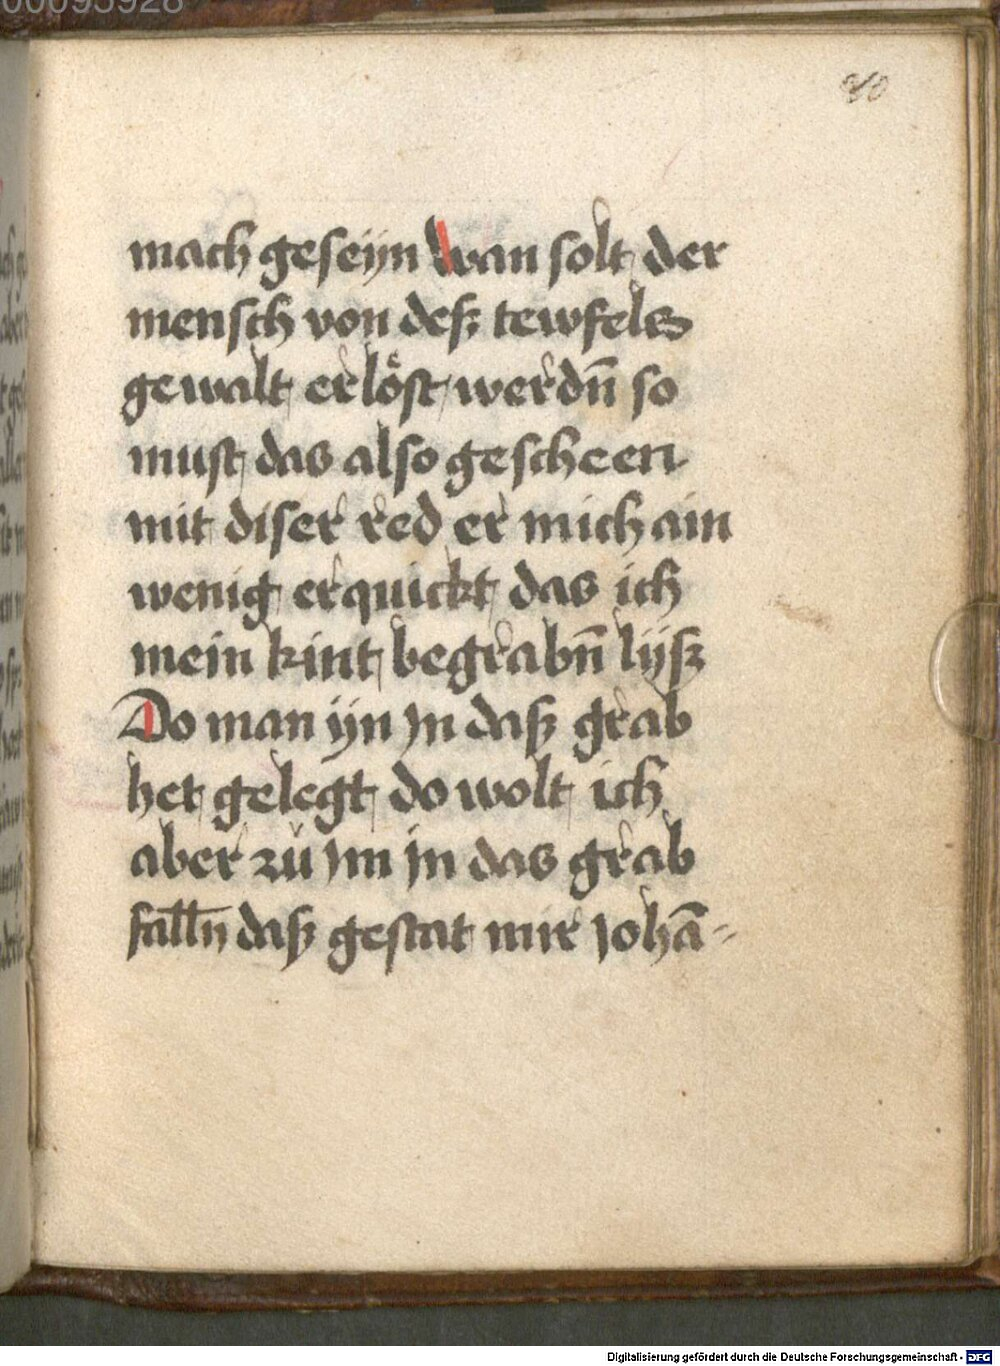 00095928
40
mach geseÿn wan solt der
mensch von deß tewfels
gewalt erlöst werdn̄ so
must das also gescheen
mit diser red er mich ain
wenig erquickt das ich
mein kint begrabn̄ lijß
Do man ÿn jn daß grab
het gelegt do wolt ich
aber zů jm jn das grab
falln̄ daß gestat mir johā-
Digitalisierung gefördert durch die Deutsche Forschungsgemeinschaft - DFG